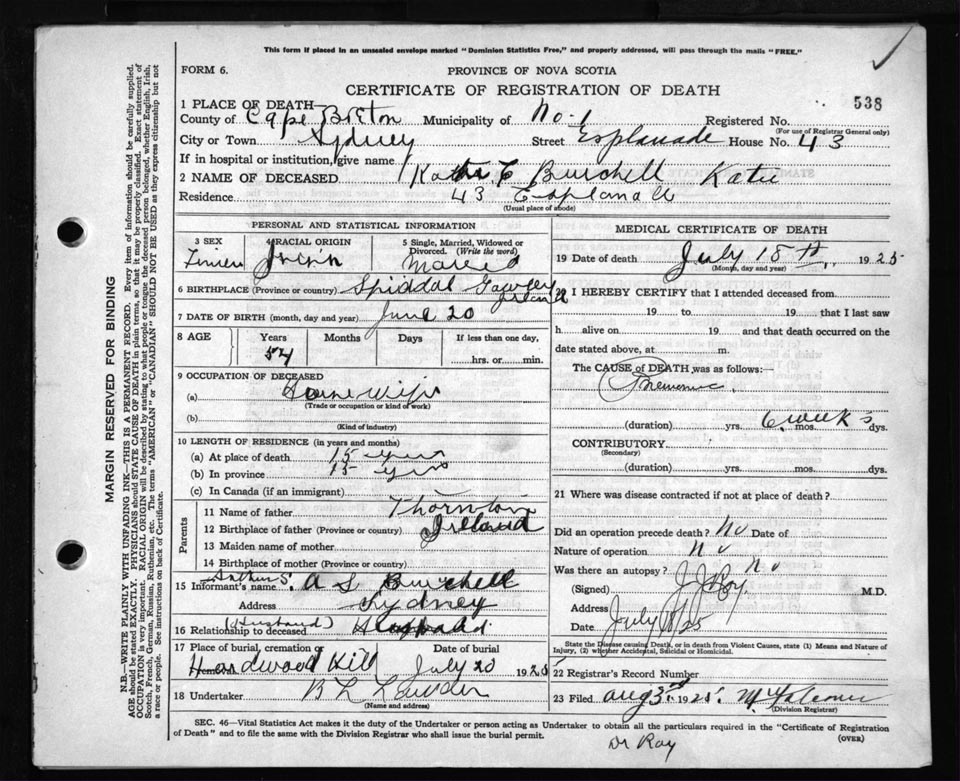 This form if placed in an unsealed envelope marked "Dominion Statistics Free," and properly addressed, will pass through the mails "FREE."
FORM 6.
PROVINCE OF NOVA SCOTIA
CERTIFICATE OF REGISTRATION OF DEATH
538
1 PLACE OF DEATH—
County of Cape Breton Municipality of No. 1 Registered No.
(For use of Registrar General only)
City or Town Sydney Street Esplanade House No. 43
If in hospital or institution, give name
2 NAME OF DECEASED Burchell Katie
Residence 43 Esplanade
(Usual place of abode)
PERSONAL AND STATISTICAL INFORMATION
3 SEX
4 RACIAL ORIGIN
5 Single, Married, Widowed or Divorced. (Write the word)
6 BIRTHPLACE (Province or country) Spiddal Ireland
7 DATE OF BIRTH (month, day and year) June 20
8 AGE Years Months Days If less than one day,
54 hrs. or min.
9 OCCUPATION OF DECEASED
(a) Housewife
(Trade or occupation or kind of work)
(b)
(Kind of industry)
10 LENGTH OF RESIDENCE (in years and months)
(a) At place of death 15 yrs
(b) In province 15 yrs
(c) In Canada (if an immigrant)
Parents
11 Name of father Thornton
12 Birthplace of father (Province or country) Ireland
13 Maiden name of mother
14 Birthplace of mother (Province or country)
Arthur S.
15 Informant's name A S Burchell
Address Sydney
(Husband)
16 Relationship to deceased
17 Place of burial, cremation or Date of burial
Hardwood Hill July 20 1925
18 Undertaker B L
(Name and address)
MEDICAL CERTIFICATE OF DEATH
19 Date of death July 18th 1925
(Month, day and year)
20 I HEREBY CERTIFY that I attended deceased from
19 to 19 that I last saw
h alive on 19 and that death occurred on
date stated above, at m.
The CAUSE of DEATH was as follows:—
Pneumonia
6 weeks
(duration) yrs. mos. dys.
CONTRIBUTORY
(Secondary)
(duration) yrs. mos. dys.
21 Where was disease contracted if not at place of death?
Did an operation precede death? No Date of
Nature of operation No
Was there an autopsy? No
(Signed) J J Roy M.D.
Address
Date July 25
State the Disease causing Death, or in death from Violent Causes, state (1) Means and Nature of Injury, (2) whether Accidental, Suicidal or Homicidal.
22 Registrar's Record Number
23 Filed Aug 3rd 1925.
(Division Registrar)
SEC. 46—Vital Statistics Act makes it the duty of the Undertaker or person acting as Undertaker to obtain all the particulars required in the "Certificate of Registration
of Death" and to file the same with the Division Registrar who shall issue the burial permit.
(OVER)
Dr Roy
MARGIN RESERVED FOR BINDING
N.B.—WRITE PLAINLY WITH UNFADING INK—THIS IS A PERMANENT RECORD. Every item of information should be carefully supplied.
AGE should be stated EXACTLY. PHYSICIANS should STATE CAUSE OF DEATH in plain terms, so that it may be properly classified. Exact statement of
OCCUPATION is very important. RACIAL ORIGIN will be described by stating to what people or tongue the deceased person belonged, whether English, Irish,
Scotch, French, German, Russian, Ruthenian, etc. The terms "AMERICAN" or "CANADIAN" SHOULD NOT BE USED as they express citizenship but not
a race or people. See instructions on back of Certificate.